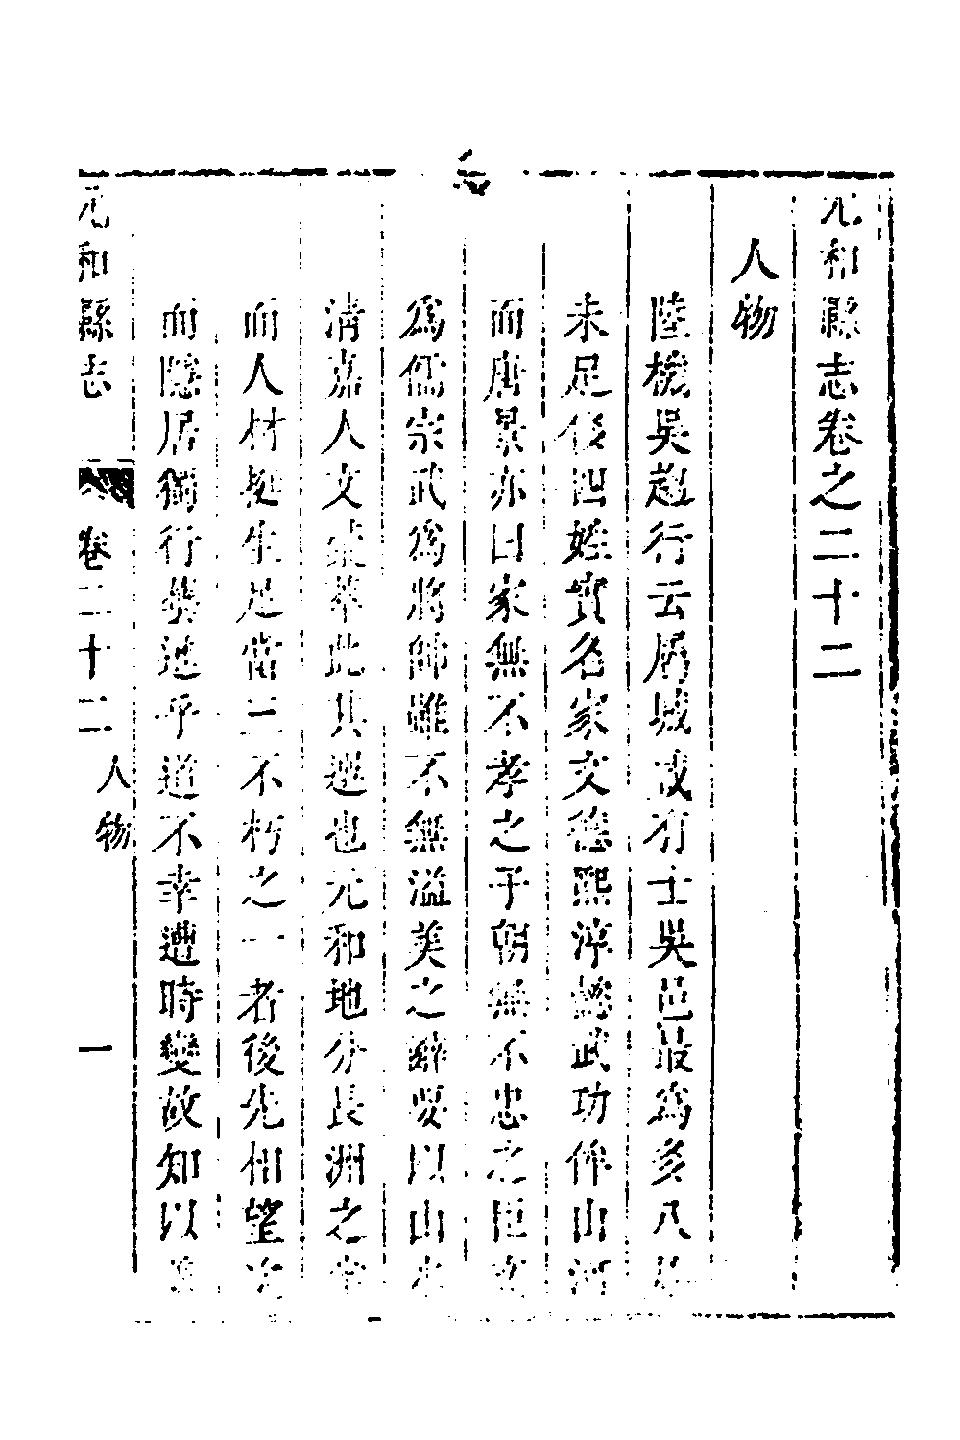 元和縣志卷之二十二
人物
陸機吳趨行云屬城咸有士吳邑最爲多八族
未足侈四姓實名家文德熙淳懿武功侔山河
而唐景亦曰家無不孝之子朝無不忠之臣文
爲儒宗武爲將帥雖不無溢美之辭要以山水
清嘉人文薈萃此其選也元和地分長洲之半
而人材挺生足當三不朽之一者後先相望次
而隱居獨行樂進乎道不幸遭時變故知以
元和縣志 卷二十二 人物 一